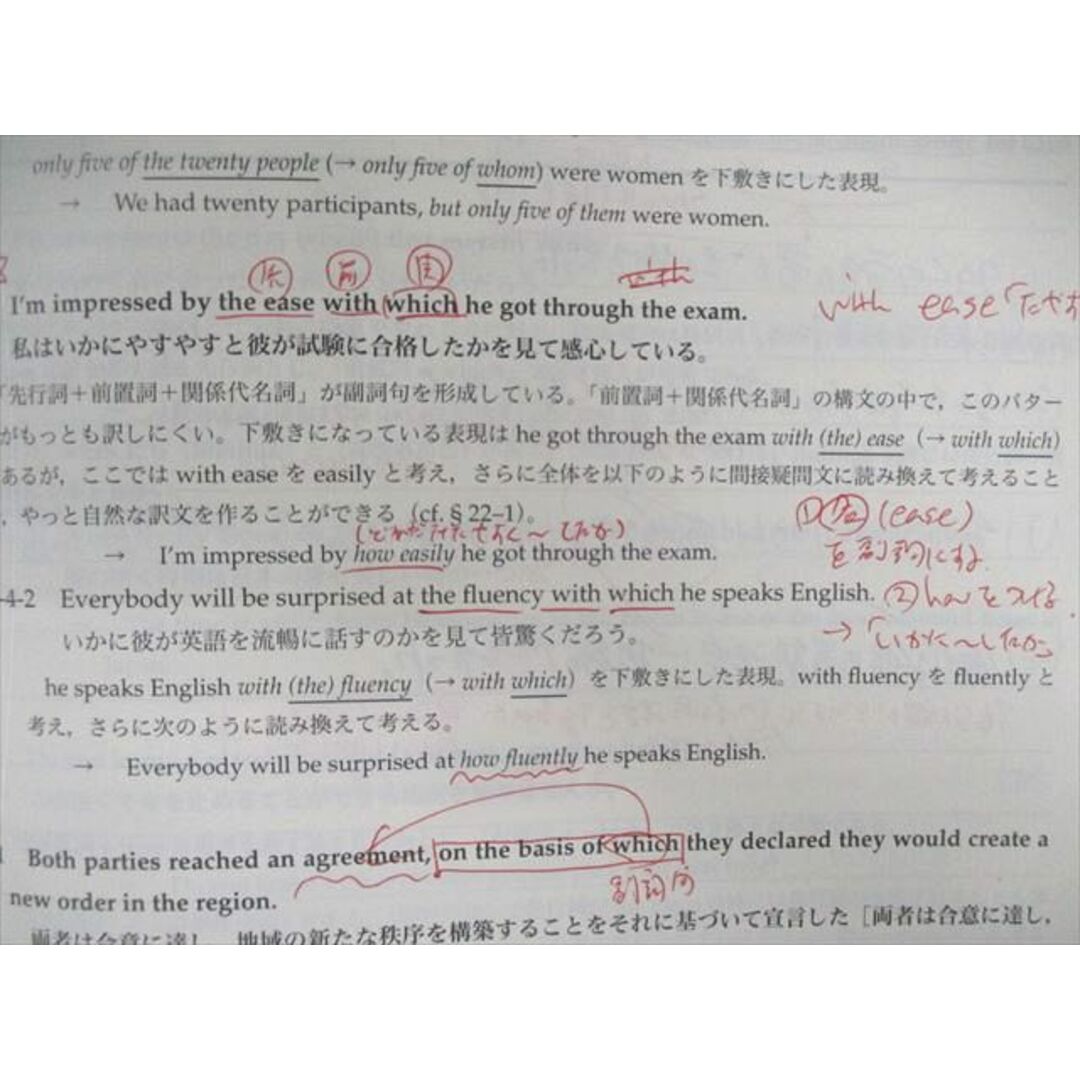 only five of the twenty people (→ only five of whom) were women を下敷きにした表現。
→ We had twenty participants, but only five of them were women.
先 前 関
I'm impressed by the ease with which he got through the exam.
with ease「たやす
私はいかにやすやすと彼が試験に合格したかを見て感心している。
「先行詞＋前置詞＋関係代名詞」が副詞句を形成している。「前置詞＋関係代名詞」の構文の中で，このパター
がもっとも訳しにくい。下敷きになっている表現は he got through the exam with (the) ease（→ with which）
あるが，ここでは with ease を easily と考え，さらに全体を以下のように間接疑問文に読み換えて考えること
，やっと自然な訳文を作ることができる（cf. § 22–1）。
① (ease)
を副詞にする
→ I'm impressed by how easily he got through the exam.
-4-2 Everybody will be surprised at the fluency with which he speaks English.
② how をつける
いかに彼が英語を流暢に話すのかを見て皆驚くだろう。
→「いかに〜したか
he speaks English with (the) fluency（→ with which）を下敷きにした表現。with fluency を fluently と
考え，さらに次のように読み換えて考える。
→ Everybody will be surprised at how fluently he speaks English.
Both parties reached an agreement, on the basis of which they declared they would create a
副詞句
new order in the region.
両者は合意に達し，地域の新たな秩序を構築することをそれに基づいて宣言した［両者は合意に達し，